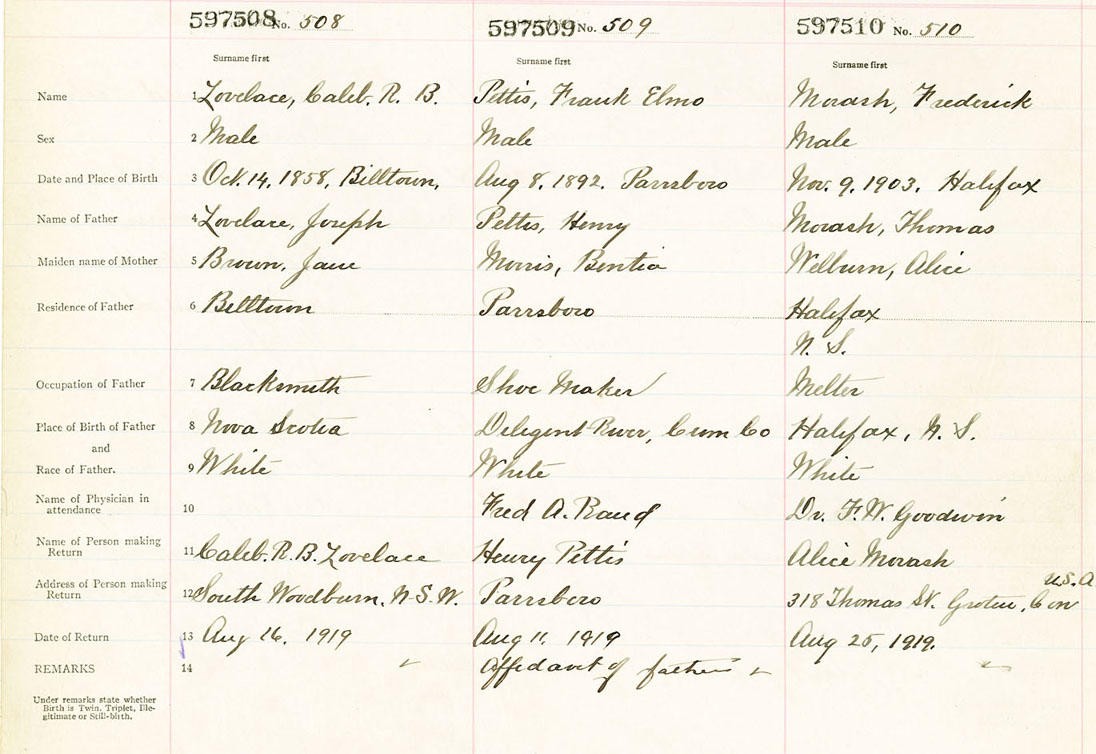 597508 No. 508 597509 No. 509 597510 No. 510
Surname first Surname first Surname first
Name 1 Lovelace, Caleb. R. B. Pettis, Frank Elmo Morash, Frederick
Sex 2 Male Male Male
Date and Place of Birth 3 Oct. 14, 1858, Billtown, Aug 8, 1892. Parrsboro Nov. 9, 1903. Halifax
Name of Father 4 Lovelace, Joseph Pettis, Henry Morash, Thomas
Maiden name of Mother 5 Brown, Jane Morris, Bentia Welburn, Alice
Residence of Father 6 Billtown Parrsboro Halifax
N. S.
Occupation of Father 7 Blacksmith Shoe Maker Melter
Place of Birth of Father 8 Nova Scotia Deligent River, Cum Co Halifax, N. S.
and
Race of Father. 9 White White White
Name of Physician in
attendance 10 Fred A. Rand Dr. F. W. Goodwin
Name of Person making
Return 11 Caleb. R. B. Lovelace Henry Pettis Alice Morash
U.S.A
Address of Person making
Return 12 South Woodburn. N. S. W. Parrsboro 318 Thomas St. Groton, Con
Date of Return 13 Aug 16, 1919 Aug 11, 1919 Aug 25, 1919.
REMARKS 14 Affedavit of father
Under remarks state whether
Birth is Twin, Triplet, Ille-
gitimate or Still-birth.